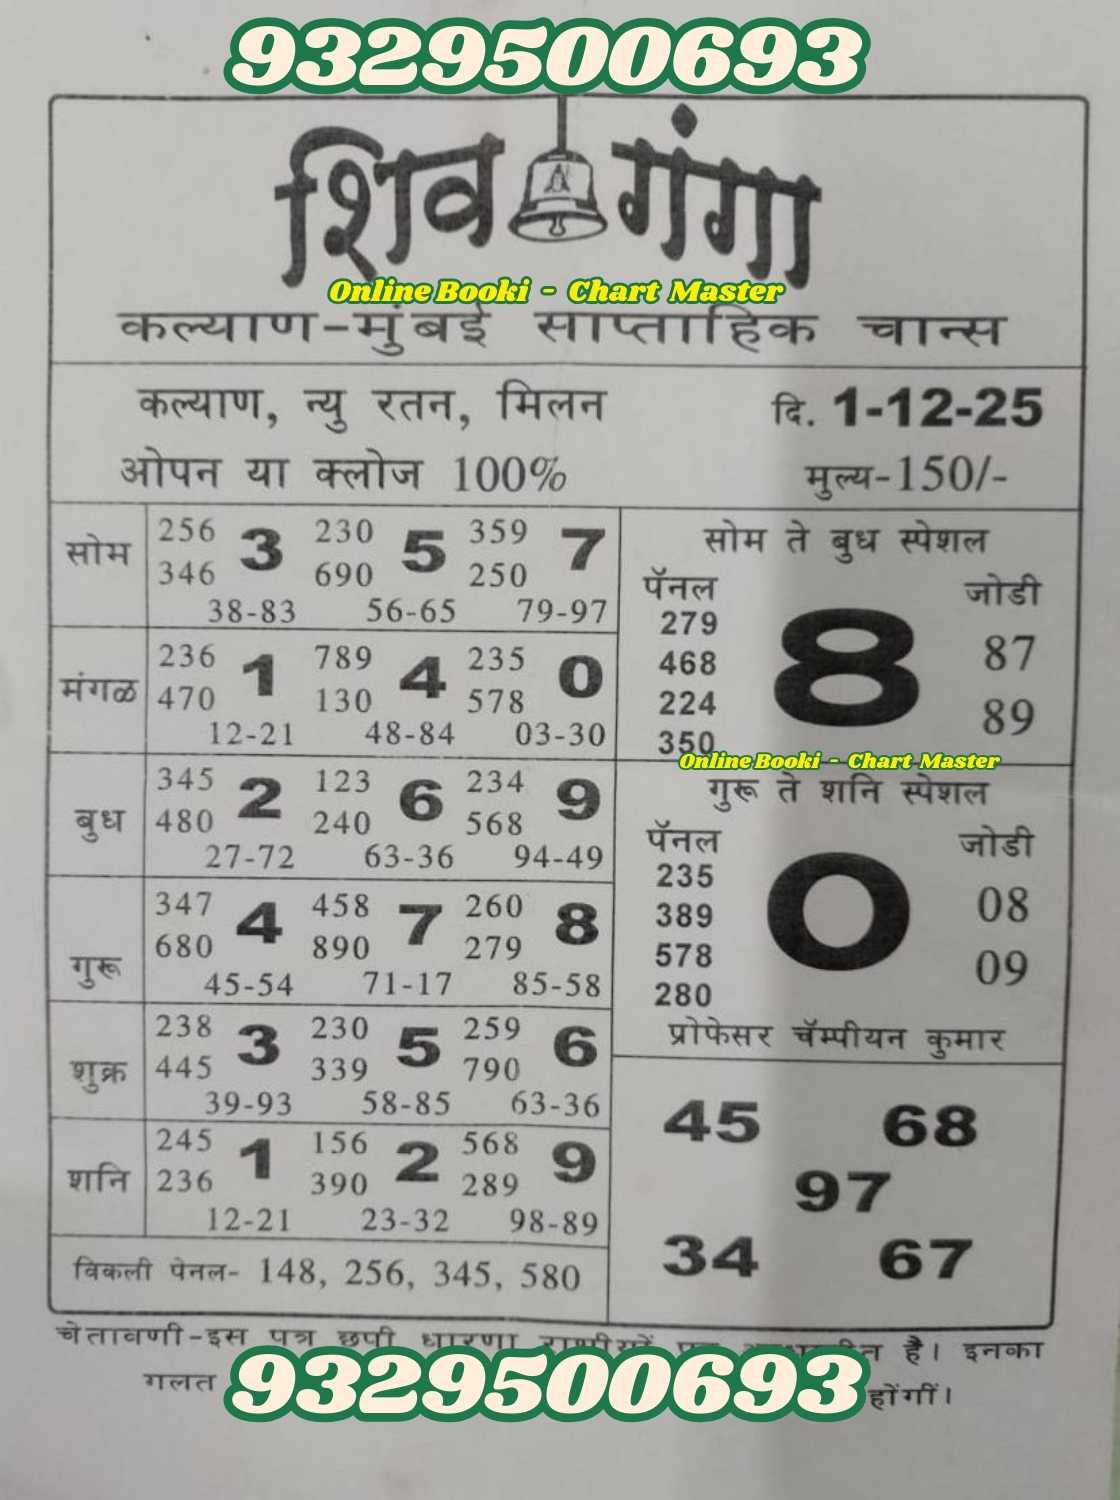 9329500693
शिव गंगा
Online Booki - Chart Master
कल्याण-मुंबई साप्ताहिक चान्स
कल्याण, न्यु रतन, मिलन
दि. 1-12-25
ओपन या क्लोज 100%
मुल्य-150/-
सोम
256 3 230 5 359 7
346 690 250
38-83 56-65 79-97
मंगळ
236 1 789 4 235 0
470 130 578
12-21 48-84 03-30
बुध
345 2 123 6 234 9
480 240 568
27-72 63-36 94-49
गुरू
347 4 458 7 260 8
680 890 279
45-54 71-17 85-58
शुक्र
238 3 230 5 259 6
445 339 790
39-93 58-85 63-36
शनि
245 1 156 2 568 9
236 390 289
12-21 23-32 98-89
विकली पेनल- 148, 256, 345, 580
सोम ते बुध स्पेशल
पॅनल जोडी
279
468 8 87
224 89
350
Online Booki - Chart Master
गुरू ते शनि स्पेशल
पॅनल जोडी
235
389 0 08
578 09
280
प्रोफेसर चॅम्पीयन कुमार
45 68
97
34 67
चेतावणी-इस पत्र छपी धारणा है। इनका
गलत होंगीं।
9329500693